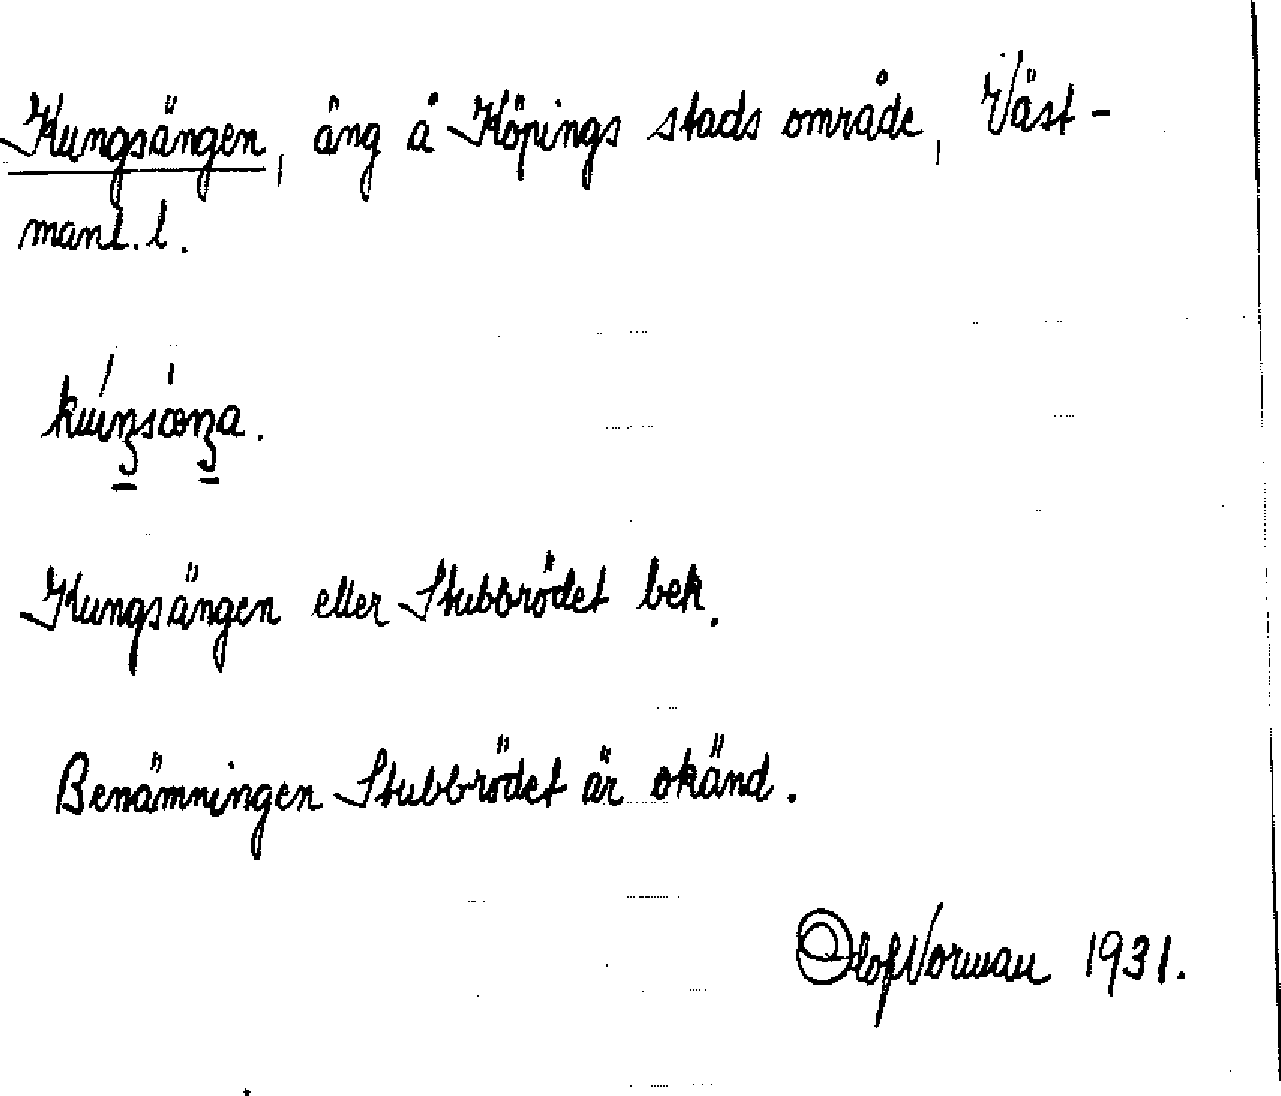 Kungsängen, äng å Köpings stads område, Väst-
manl. l.
Kungsängen eller Stubbrödet bek.
Benämningen Stubbrödet är okänd.
Olof Norman 1931.